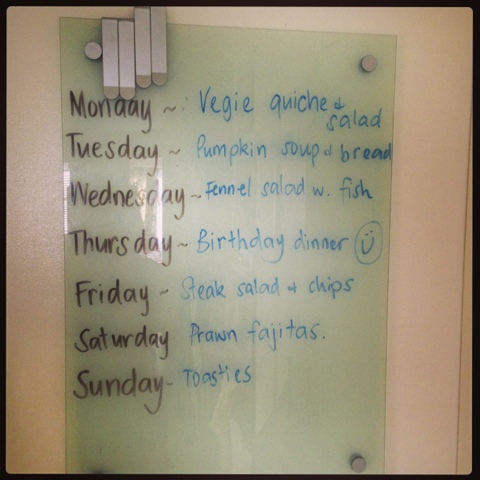 Monday ~ : Vegie quiche &
salad
Tuesday ~ Pumpkin soup & bread
Wednesday ~ Fennel salad w. fish
Thursday ~ Birthday dinner ☺
Friday ~ Steak salad & chips
Saturday Prawn fajitas.
Sunday - Toasties